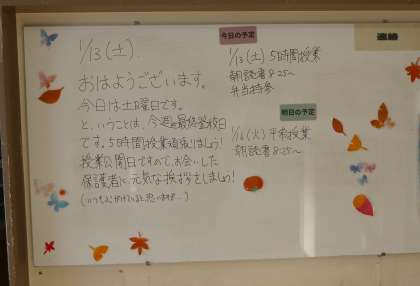 1/13(土).
おはようございます。
今日は土曜日です。
と、いうことは、今週の最終登校日
です。5時間授業頑張りましょう!
授業公開日ですので、お会いした
保護者に元気な挨拶をしましょう!
今日の予定
1/13(土) 5時間授業
朝読書8:25~
弁当持参
明日の予定
1/16(火)平常授業
朝読書8:25~
連絡